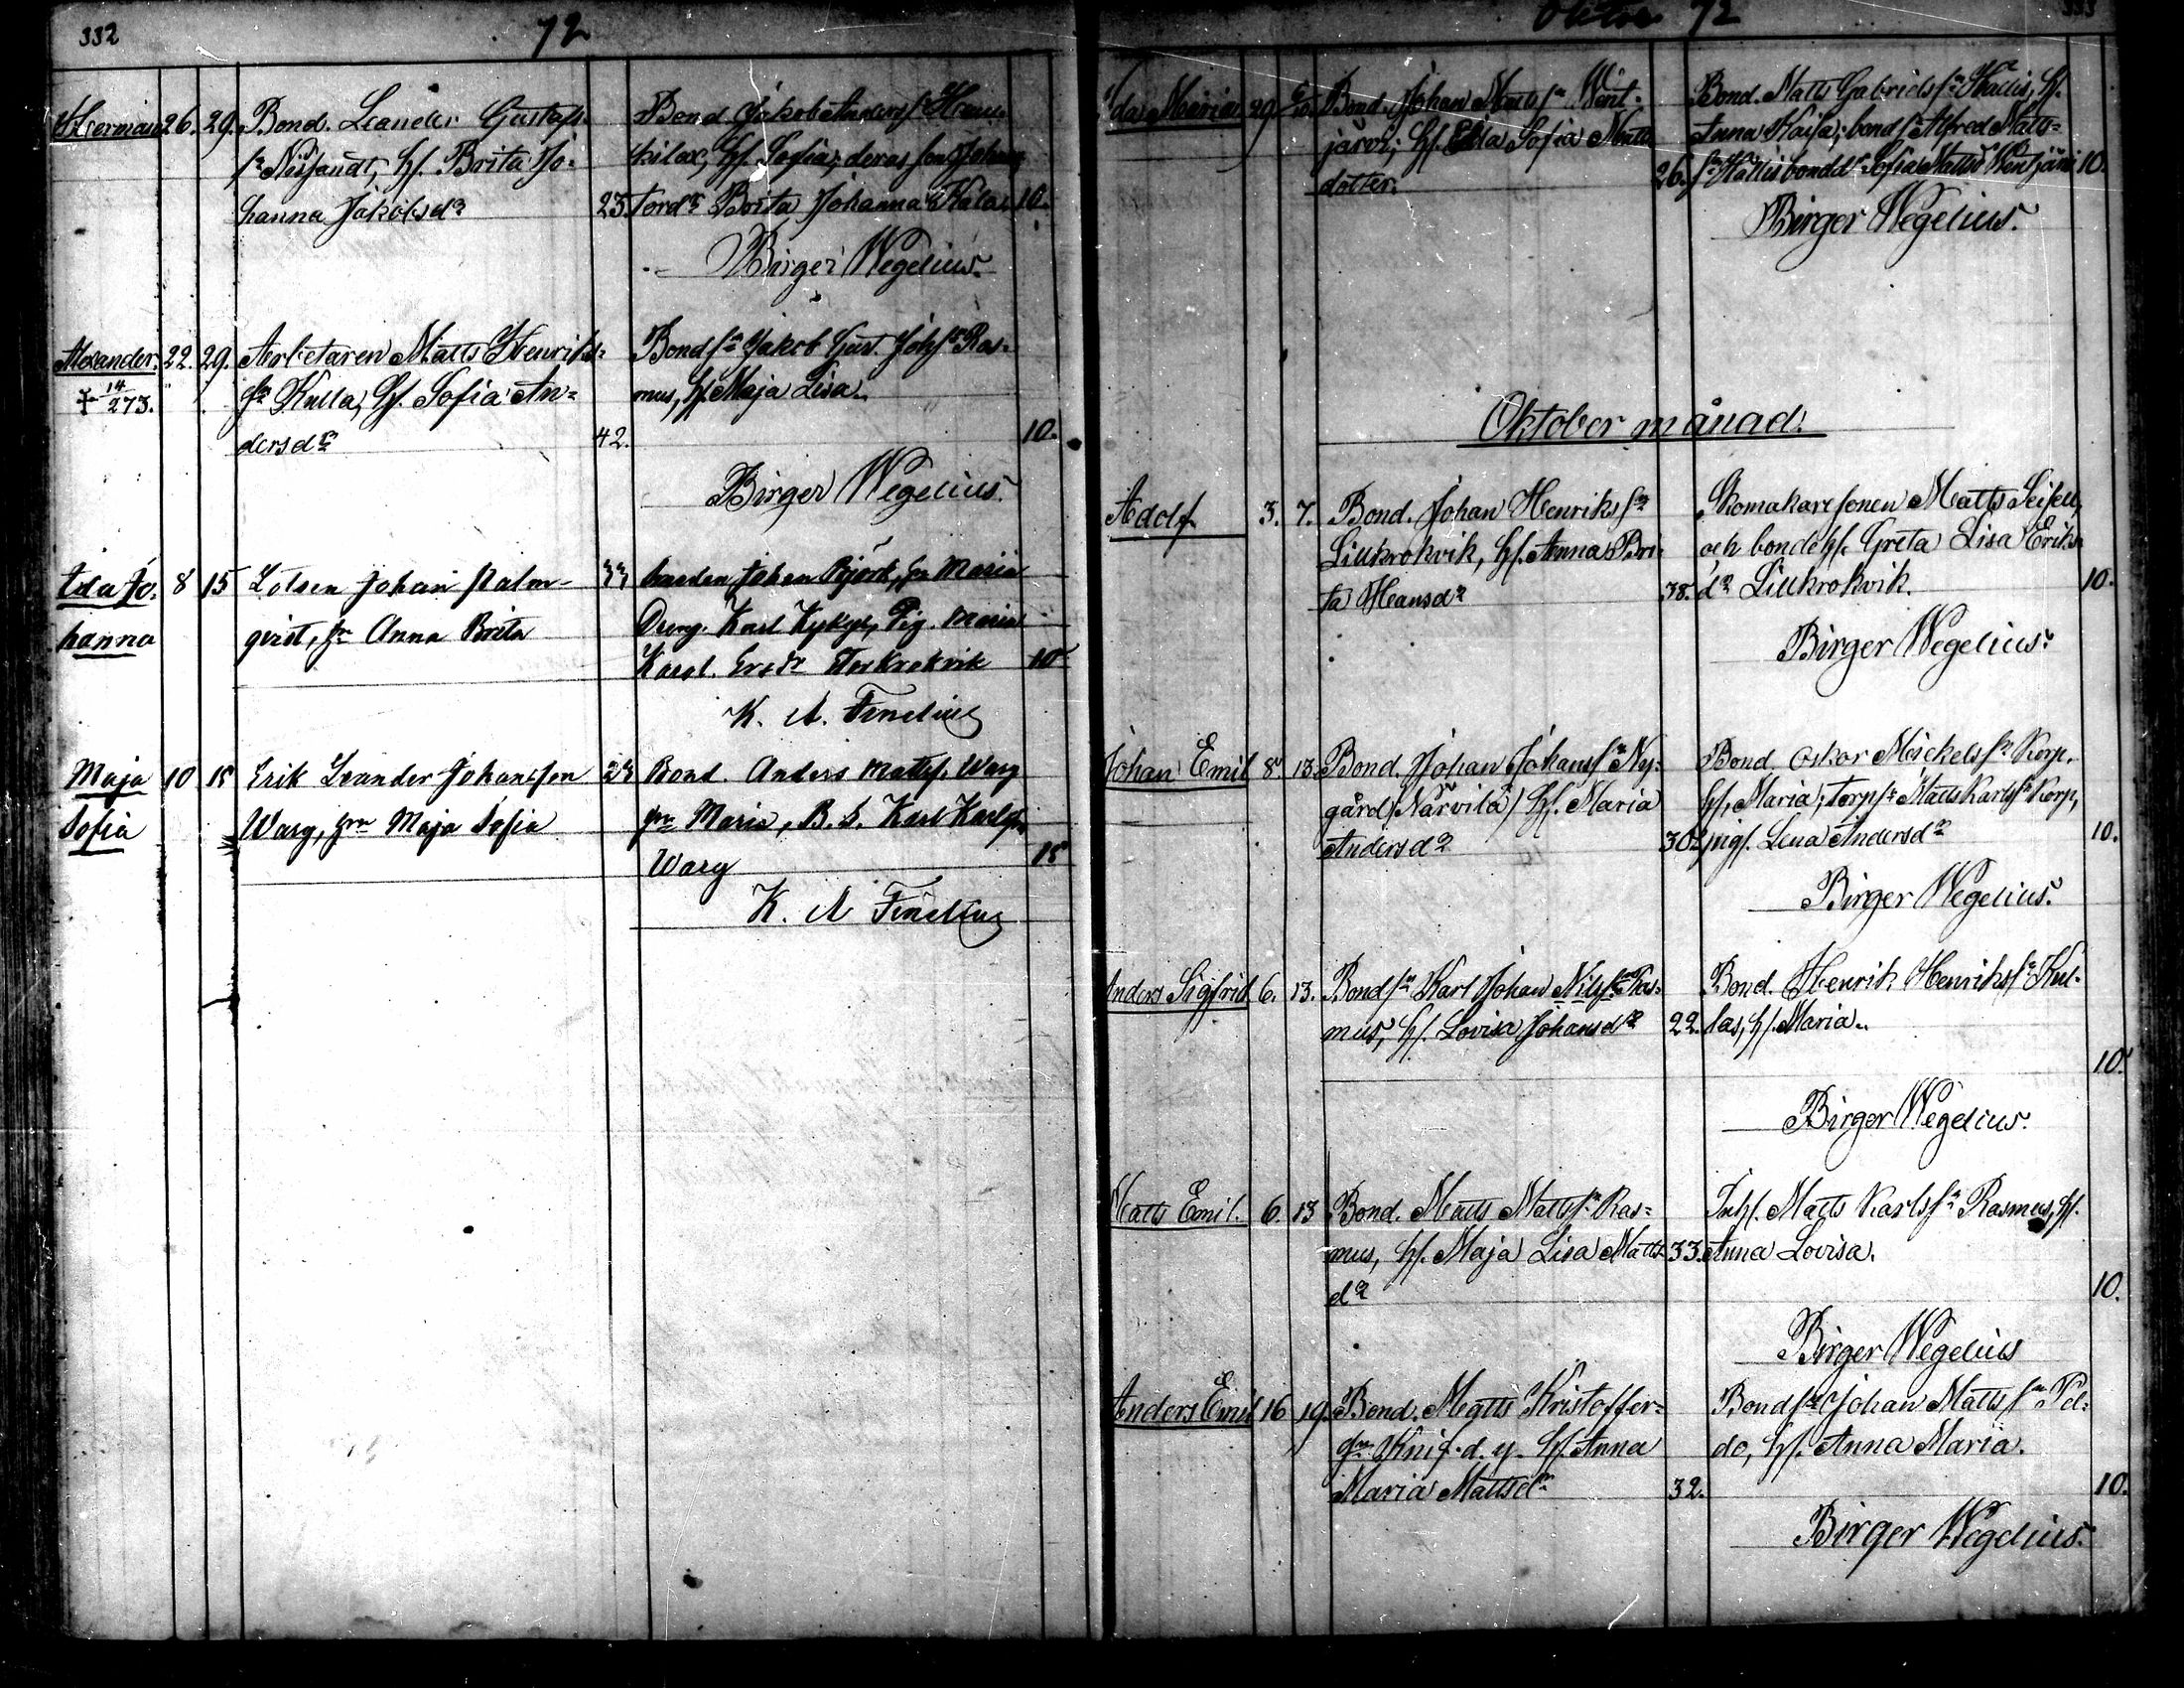 332
72
Herman 26. 29. Bond. Leander Gustafs
sn Nissandt, hf. Brita Jo-
hanna Jakobsdr 23.
Bond Jakob Andersn
hf. Sofia; deras son Johan,
Brita Johanna 10.
Birger Wegelius.
Alexander. 22. 29. Arbetaren Matts Henriks-
sn Kulla, hf. Sofia An-
dersdr 42.
+ 14/2 73.
Bondsn Jakob Gust. Johsn Ras-
mus, hf. Maja Lisa. 10.
Birger Wegelius.
Ida Jo- 8 15 Lotsen Johan Palm-
hanna qvist, hr Anna Brita
Johan Björk, hr Maria
Dreng. Karl Kykyr, Pig. Maria
Karol. Ersdr Storkrokvik 10
K. A. Finelius
Maja 10 15 Erik Leander Johansson 24
Sofia Warg, hrn Maja Sofia
Bond. Anders Mattss. Warg
hrn Maria, B. S. Karl Karlss.
Warg 15
K. A. Finelius
Oktober 72
333
Ida Maria 29. 6/10. Bond. Johan Matts sn Went-
järvi; hf. Ida Sofia Matts
dotter. 26.
Bond. Matts Gabrielssn Kallis, hf.
Anna Kaisa; bondsn Alfred Matts-
sn Kallis bondd. Sofia Mattsd Wentjärvi 10.
Birger Wegelius.
Oktober månad.
Adolf 3. 7. Bond. Johan Henrikssn
Lillkrokvik, hf. Anna Bri-
ta Hansdr 38.
Skomakaresonen Matts Seisell,
och bondehf. Greta Lisa Eriks
dr Lillkrokvik. 10.
Birger Wegelius.
Johan Emil 8 13. Bond. Johan Johanssn Ny-
gård /Närvilä/ hf. Maria
Andersdr 30½
Bond. Oskar Mickelssn Korp,
hf. Maria; torpsn Matts Karlssn Korp,
pig. Lena Andersdr 10.
Birger Wegelius.
Anders Sigfrid 6. 13. Bondsn Karl Johan Nilssn Ras-
mus, hf. Lovisa Johansdr 22.
Bond. Henrik Henrikssn Kul-
las, hf. Maria. 10.
Birger Wegelius.
Matts Emil. 6. 13 Bond. Matts Mattssn Ras-
mus, hf. Maja Lisa Matts- 33.
dr
Inh. Matts Karlssn Rasmus, hf.
Anna Lovisa. 10.
Birger Wegelius
Anders Emil 16 19. Bond. Matts Kristoffer-
sn Knif d. y. hf. Anna
Maria Mattsdr 32.
Bondsn Johan Mattssn Pel-
do, hf. Anna Maria. 10.
Birger Wegelius.